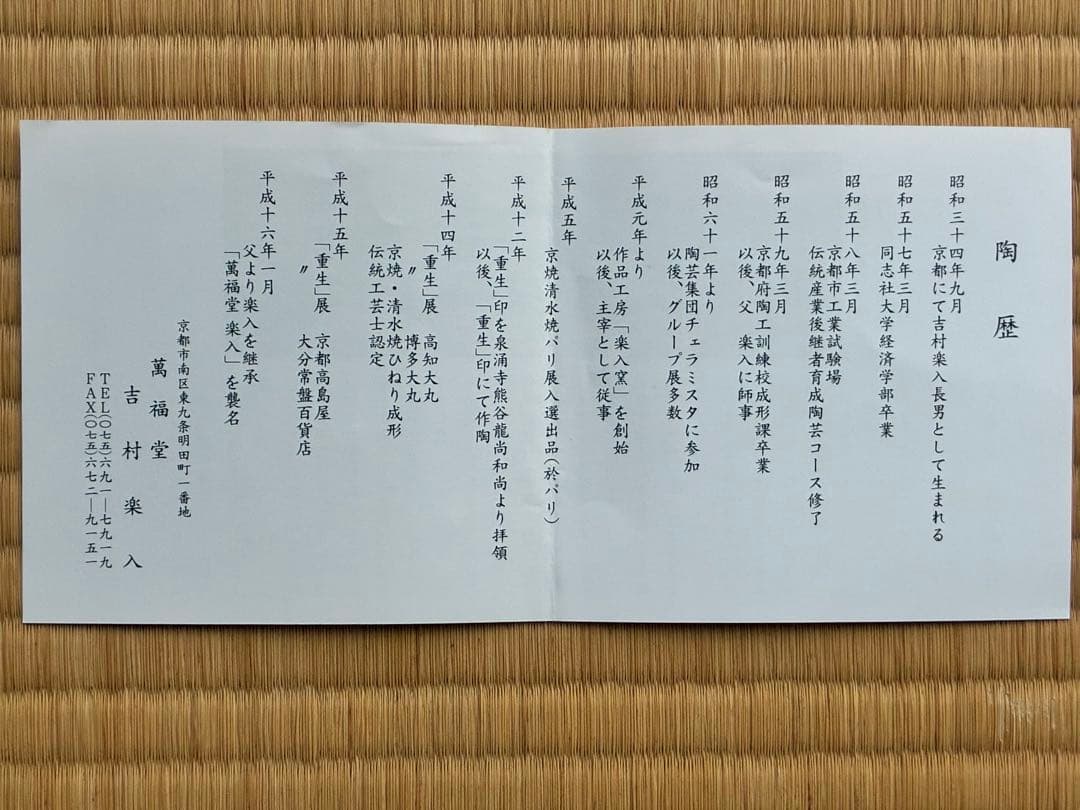 陶歴
昭和三十四年九月
京都にて吉村楽入長男として生まれる
昭和五十七年三月
同志社大学経済学部卒業
昭和五十八年三月
京都市工業試験場
伝統産業後継者育成陶芸コース修了
昭和五十九年三月
京都府陶工訓練校成形課卒業
以後、父 楽入に師事
昭和六十一年より
陶芸集団チェラミスタに参加
以後、グループ展多数
平成元年より
作品工房「楽入窯」を創始
以後、主宰として従事
平成五年
京焼清水焼パリ展入選出品(於パリ)
平成十二年
「重生」印を泉涌寺熊谷龍尚和尚より拝領
以後、「重生」印にて作陶
平成十四年
「重生」展 高知大丸
〃 博多大丸
京焼・清水焼ひねり成形
伝統工芸士認定
平成十五年
「重生」展 京都高島屋
〃 大分常盤百貨店
平成十六年一月
父より楽入を継承
「萬福堂 楽入」を襲名
京都市南区東九条明田町一番地
萬福堂
吉村楽入
TEL(〇七五)六九一―七九一九
FAX(〇七五)六七二―九一五一